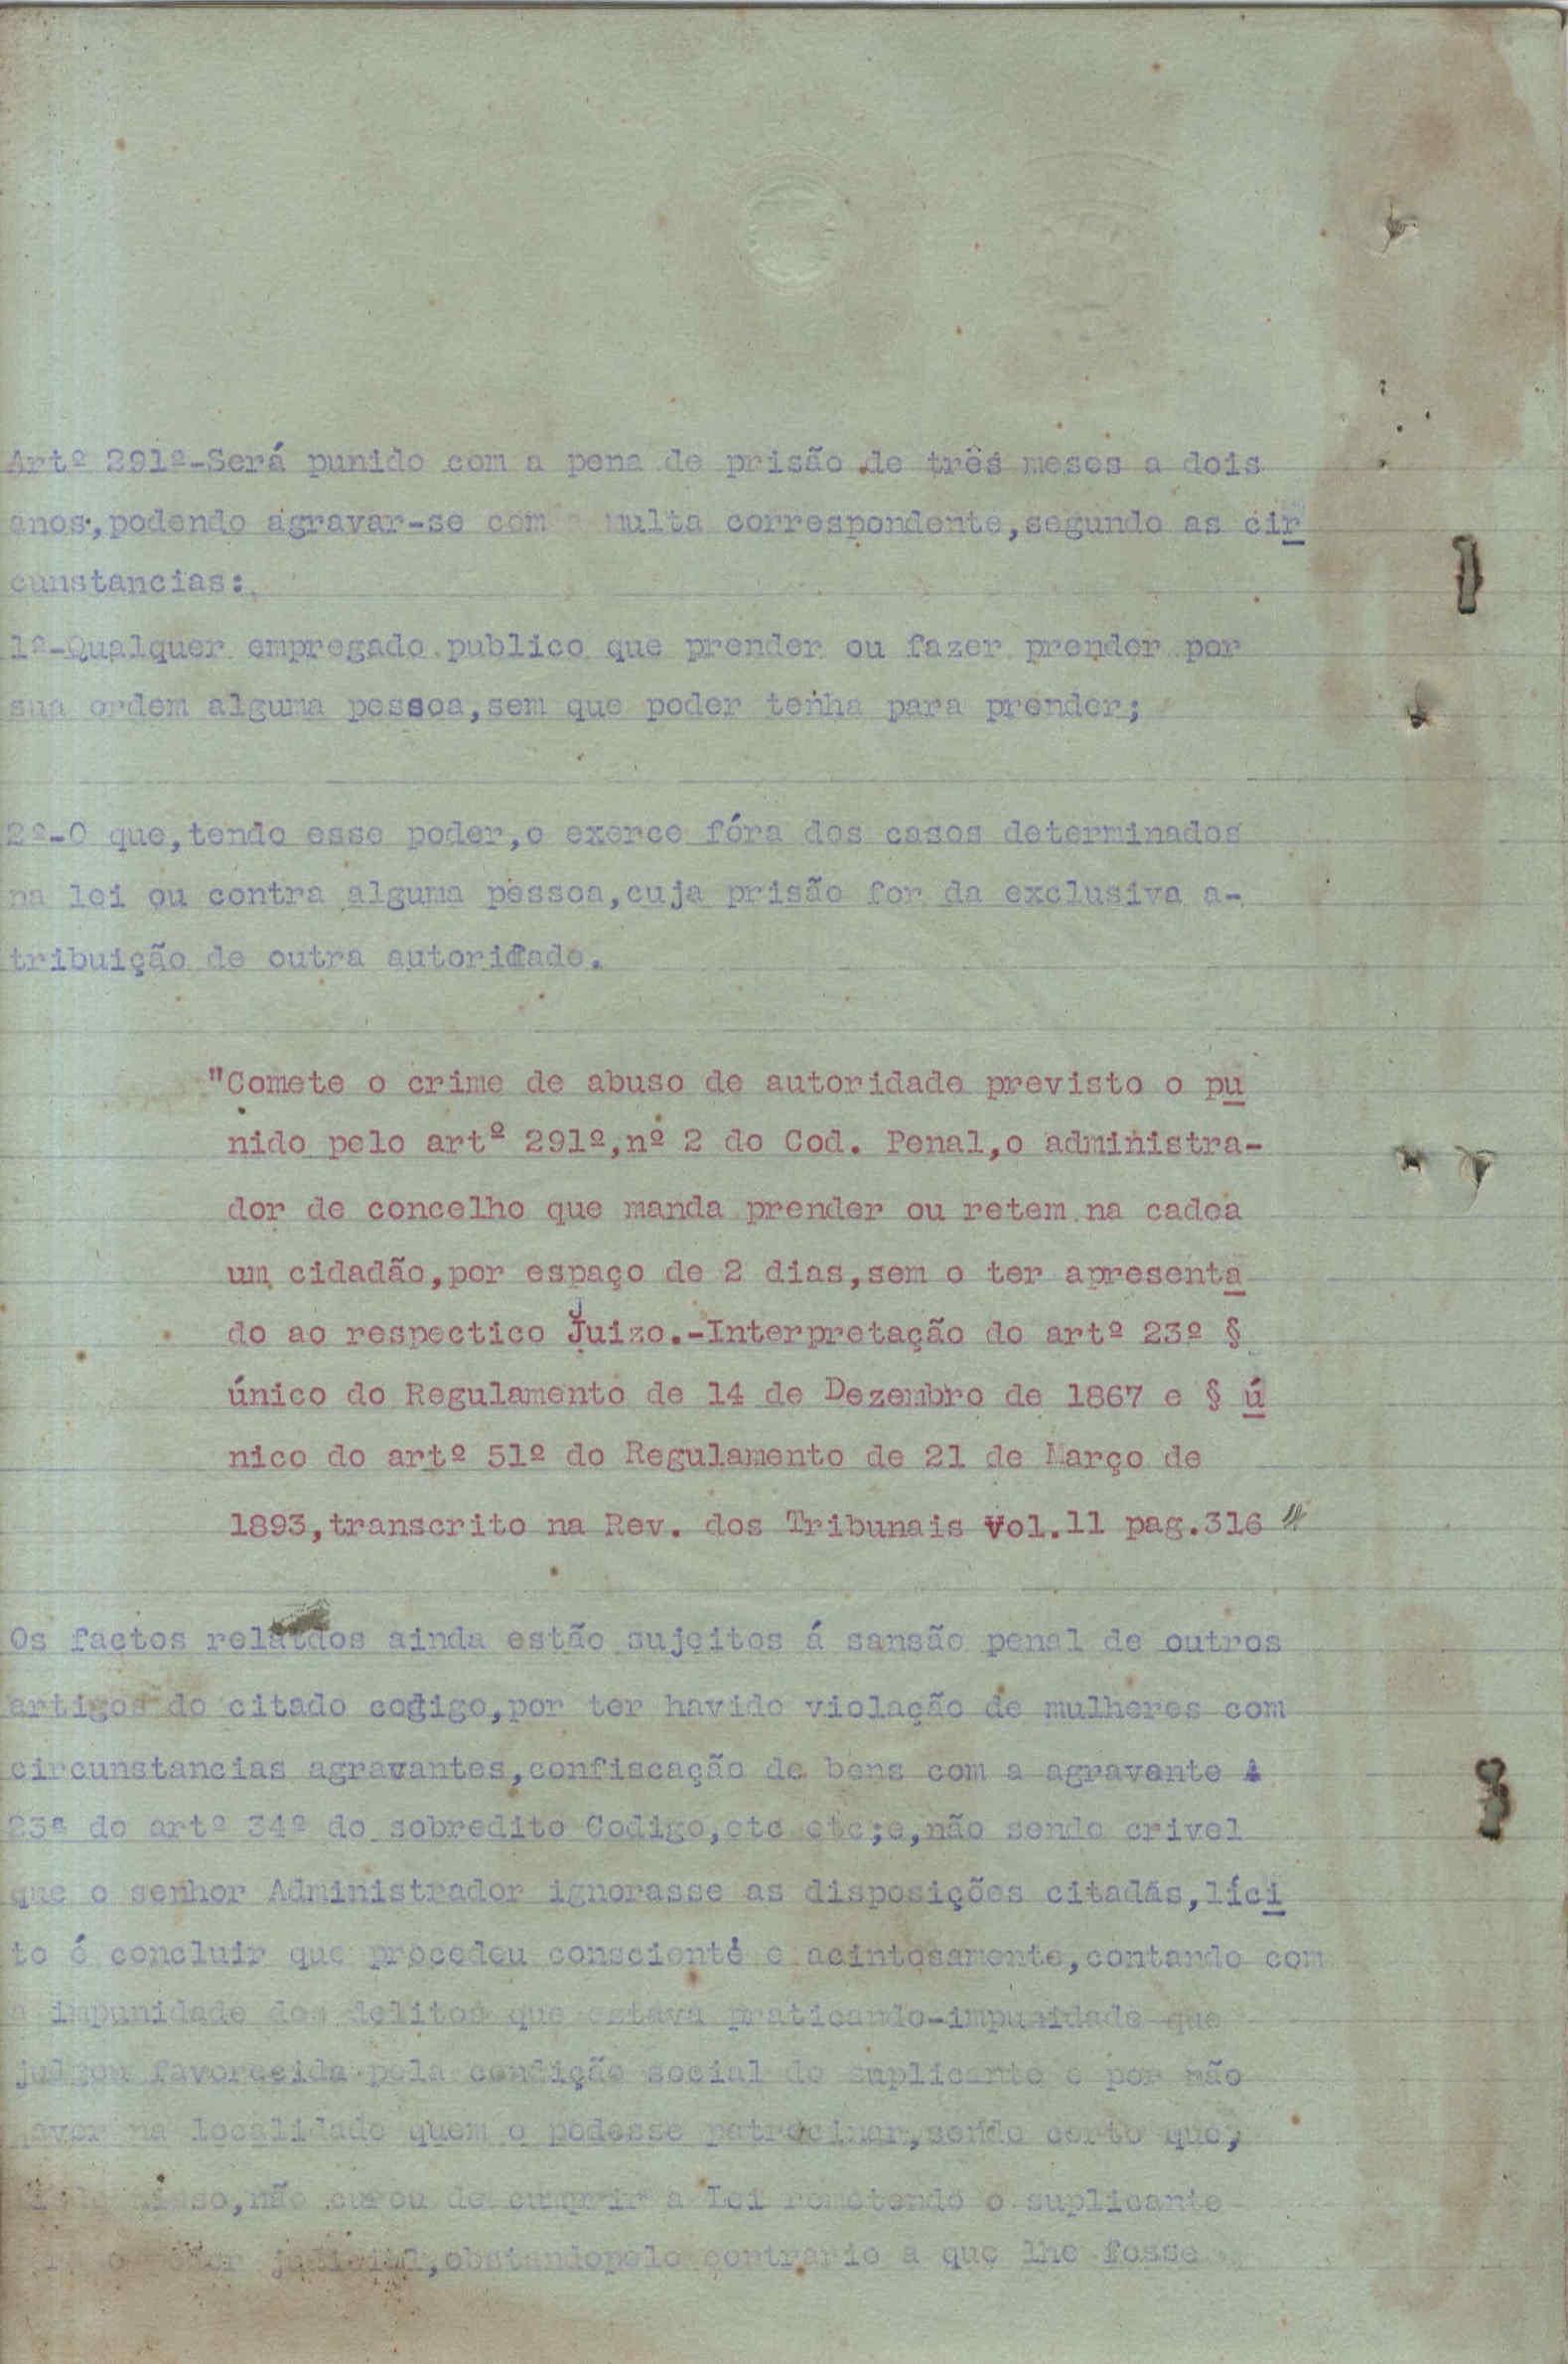 Artº 291º-Será punido com a pena de prisão de três meses a dois
anos,podendo agravar-se com multa correspondente,segundo as cir
cunstancias:
1º-Qualquer empregado publico que prender ou fazer prender por
sua ordem alguma pessoa,sem que poder tenha para prender;
2º-O que,tendo esse poder,o exerce fóra dos casos determinados
na lei ou contra alguma pessoa,cuja prisão for da exclusiva a-
tribuição de outra autoridade.
"Comete o crime de abuso de autoridade previsto e pu
nido pelo artº 291º,nº 2 do Cod. Penal,o administra-
dor de concelho que manda prender ou retem na cadea
um cidadão,por espaço de 2 dias,sem o ter apresenta
do ao respectico Juizo.-Interpretação do artº 23º §
único do Regulamento de 14 de Dezembro de 1867 e § ú
nico do artº 51º do Regulamento de 21 de Março de
1893,transcrito na Rev. dos Tribunais vol.11 pag.316"
Os factos relatdos ainda estão sujeitos á sansão penal de outros
artigos do citado codigo,por ter havido violação de mulheres com
circunstancias agravantes,confiscação de bens com a agravante
23ª do artº 34º do sobredito Codigo,etc etc;e,não sendo crivel
que o senhor Administrador ignorasse as disposições citadas,líci
to é concluir que procedeu consciente e acintosamente,contando com
a impunidade dos delitos que estava praticando-impunidade que
julgou favorecida pela condição social do suplicante e por não
haver na localidade quem o podesse patrocinar,sendo certo que,
não curou de cumprir a Lei remetendo o suplicante
judicial,obstandopelo contrario a que lhe fosse